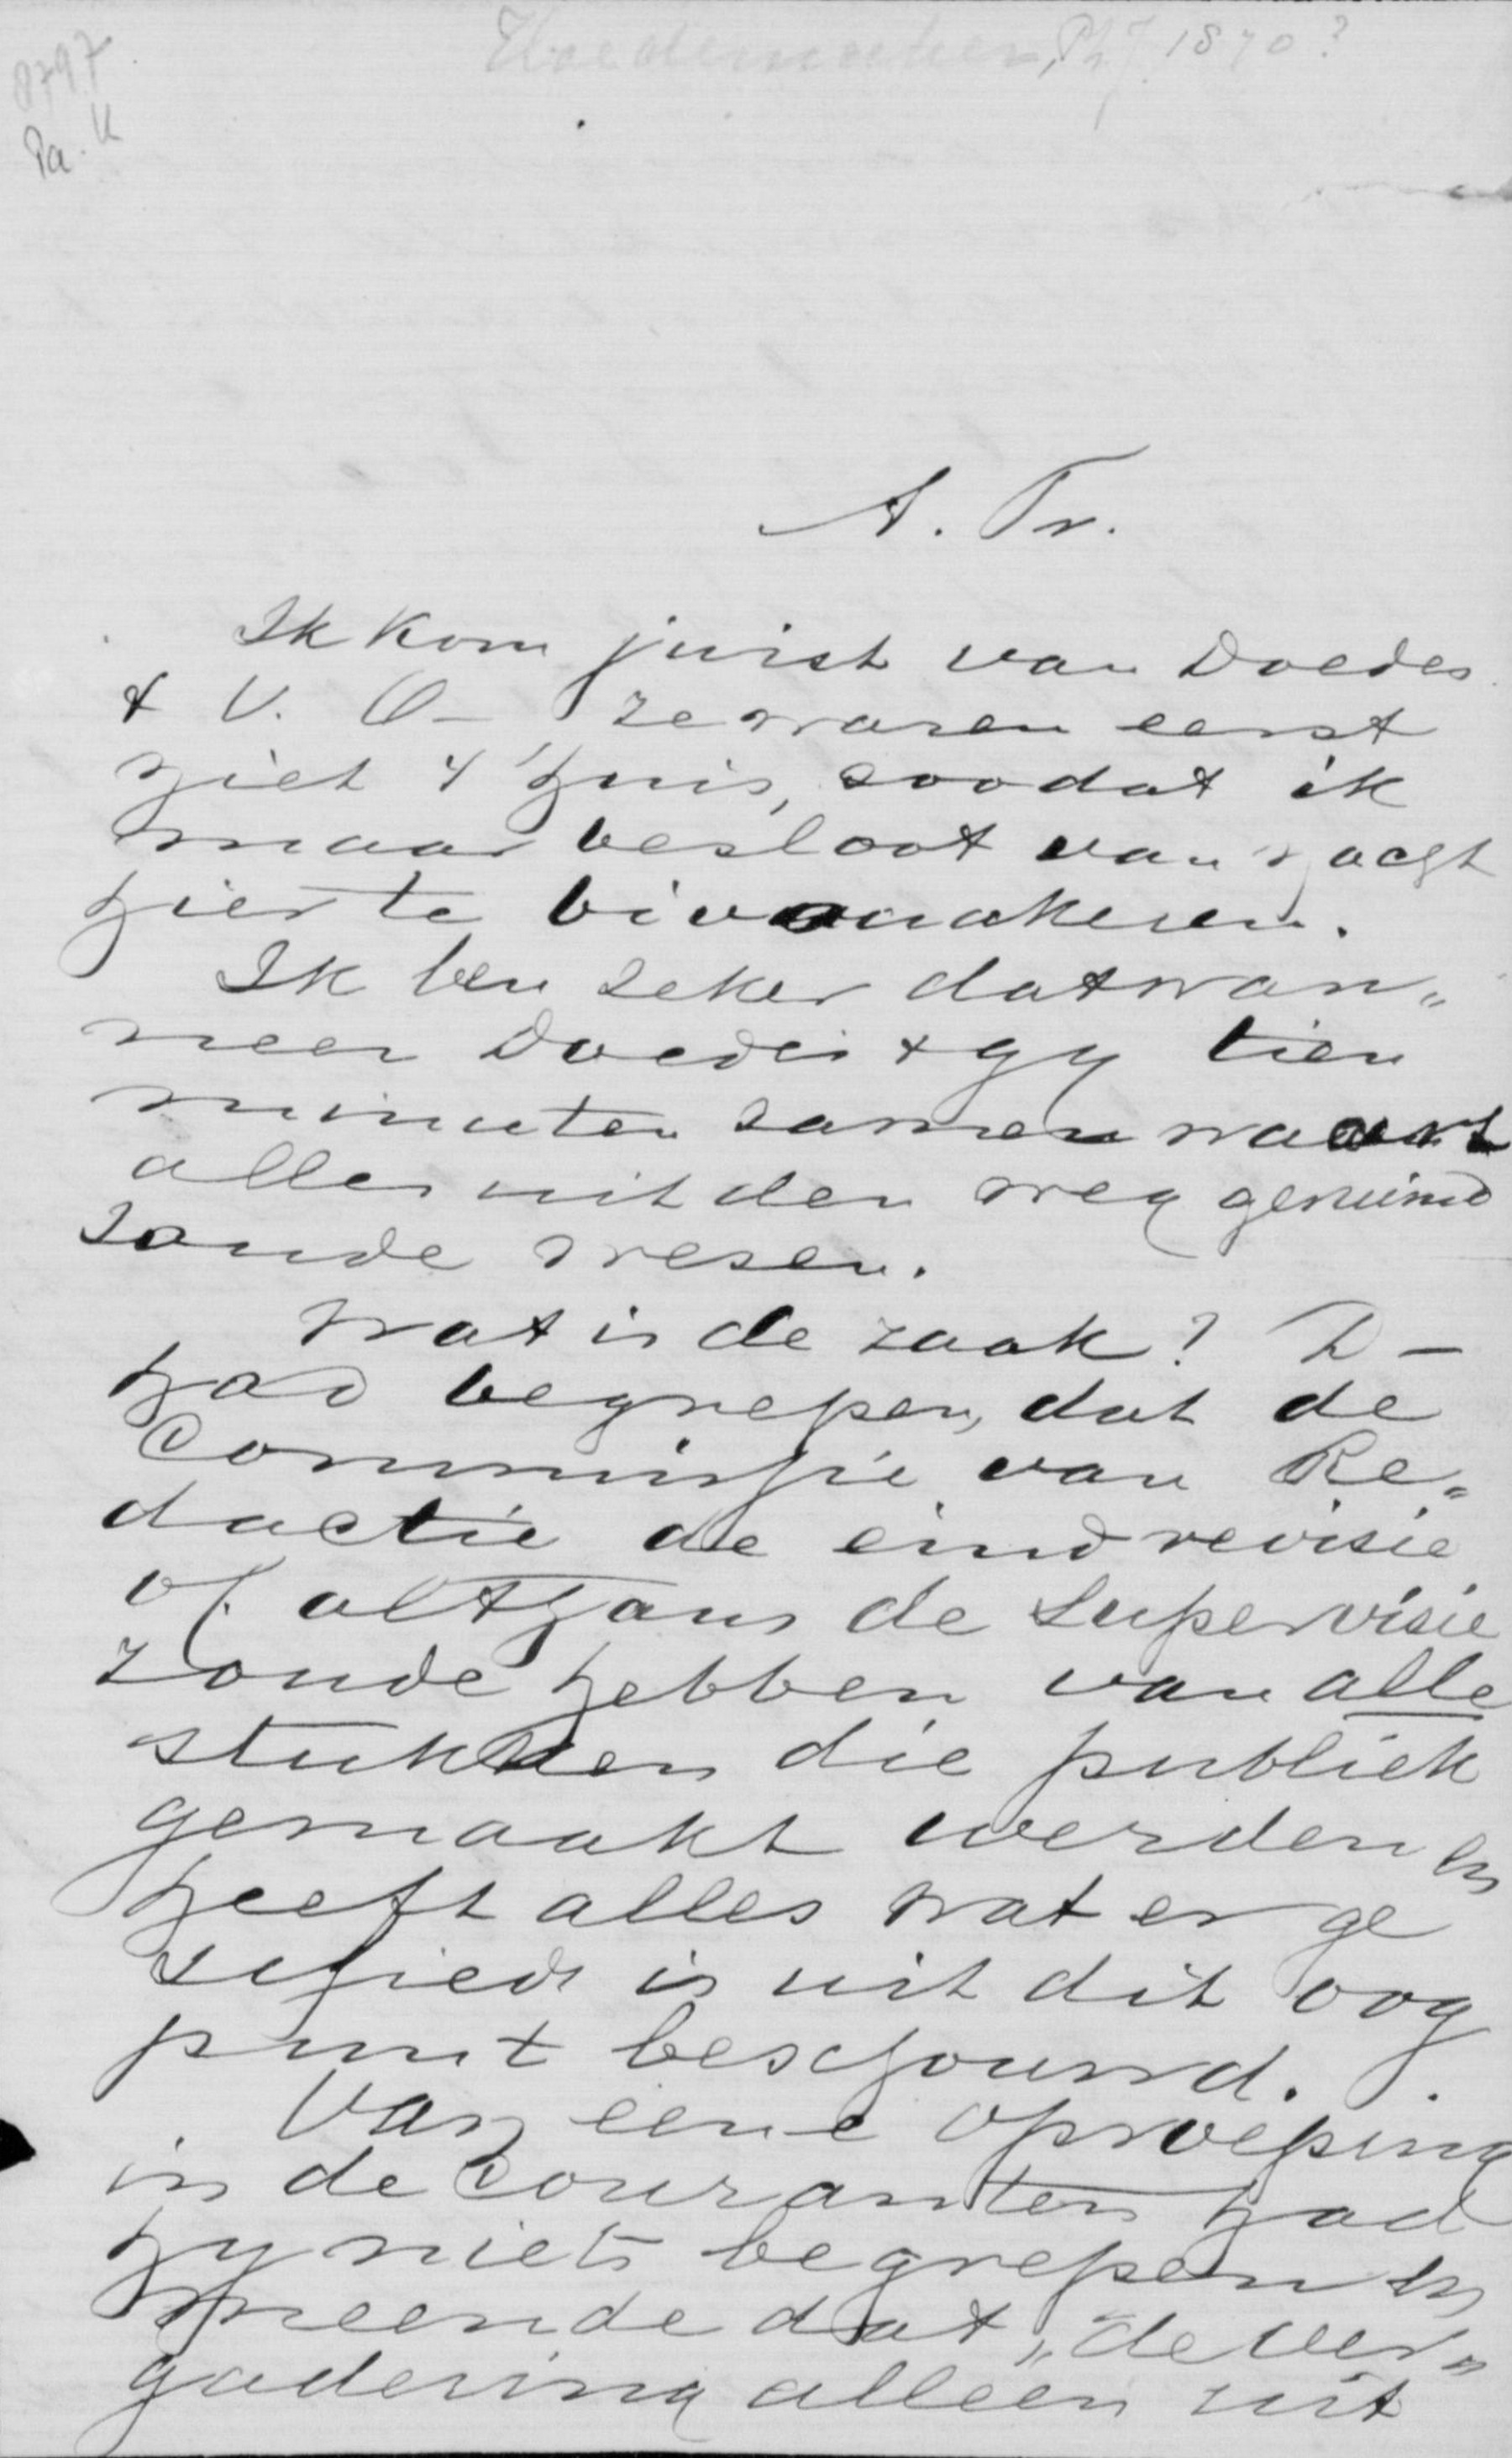 Hoedemaker, Ph J. 1870?
8797
Pa. K
A. Br.
Ik kom juist van Doedes
& V. O — ze waren eerst
niet t'huis, zoodat ik
maar besloot van nacht
hier te bivouakeren.
Ik ben zeker dat wan„
neer Doedes & gy tien
minuten samen waart
alles uit den weg geruimd
zoude wesen.
Wat is de zaak? D —
had begrepen, dat de
Commissie van Re„
dactie de eindrevisie
of althans de Supervisie
zoude hebben van alle
stukken die publiek
gemaakt werden en
heeft alles wat er ge
schied is uit dit oog
punt beschouwd.
Van eene oproeping
in de Couranten had
hy niets begrepen en
meende dat „de ver„
gadering alleen uit